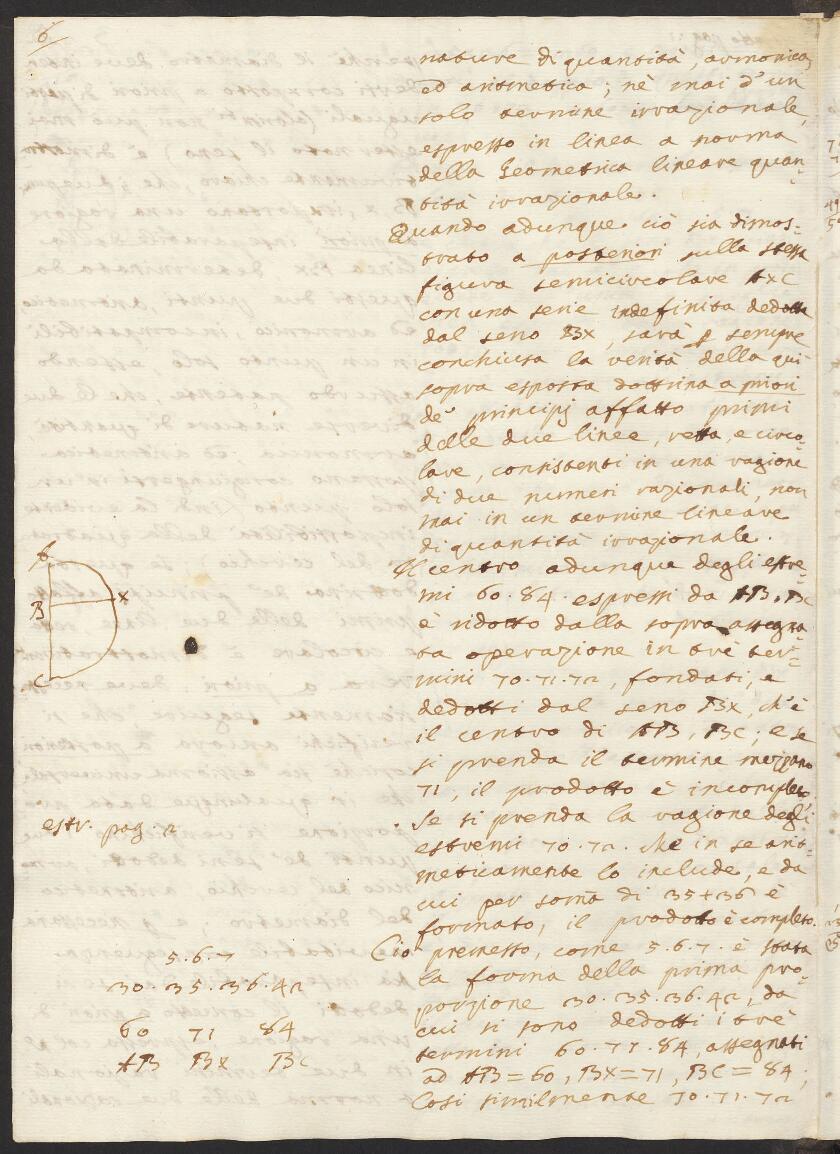 6
nature di quantità, armonica,
ed aritmetica; nè mai d'un
solo termine irrazionale,
espresso in linea a norma
della Geometrica lineare quan-
tità irrazionale.
Quando adunque ciò sia dimos-
trato a posteriori sulla stessa
figura semicircolare AXC
con una serie indefinita dedotta
dal seno BX, sarà p sempre
conchiusa la verità della quì
sopra esposta dottrina a priori
de' principj affatto primi
delle due linee, retta, e circo-
lare, consistenti in una ragione
di due numeri razionali, non
mai in un termine lineare
di quantità irrazionale.
Il centro adunque degli estre-
mi 60. 84. espressi da AB, BC
è ridotto dalla sopra assegna-
ta operazione in trè ter-
mini 70. 71. 72, fondati, e
dedotti dal seno BX, ch'è
il centro di AB, BC; e se
si prenda il termine mezzano
71, il prodotto è incompleto.
Se si prenda la ragione degli
estremi 70. 72. che in se arit-
meticamente lo include, e da
cui per soma di 35+36 è
formato, il prodotto è completo.
Ciò premesso, come 5. 6. 7. è stata
la forma della prima pro-
porzione 30. 35. 36. 42, da
cui si sono dedotti i trè
termini 60. 71. 84, assegnati
ad AB=60, BX=71, BC=84;
Così similmente 70. 71. 72
A
B
X
C
estr. pag. 2
5. 6. 7
30. 35. 36. 42
60 71 84
AB BX BC